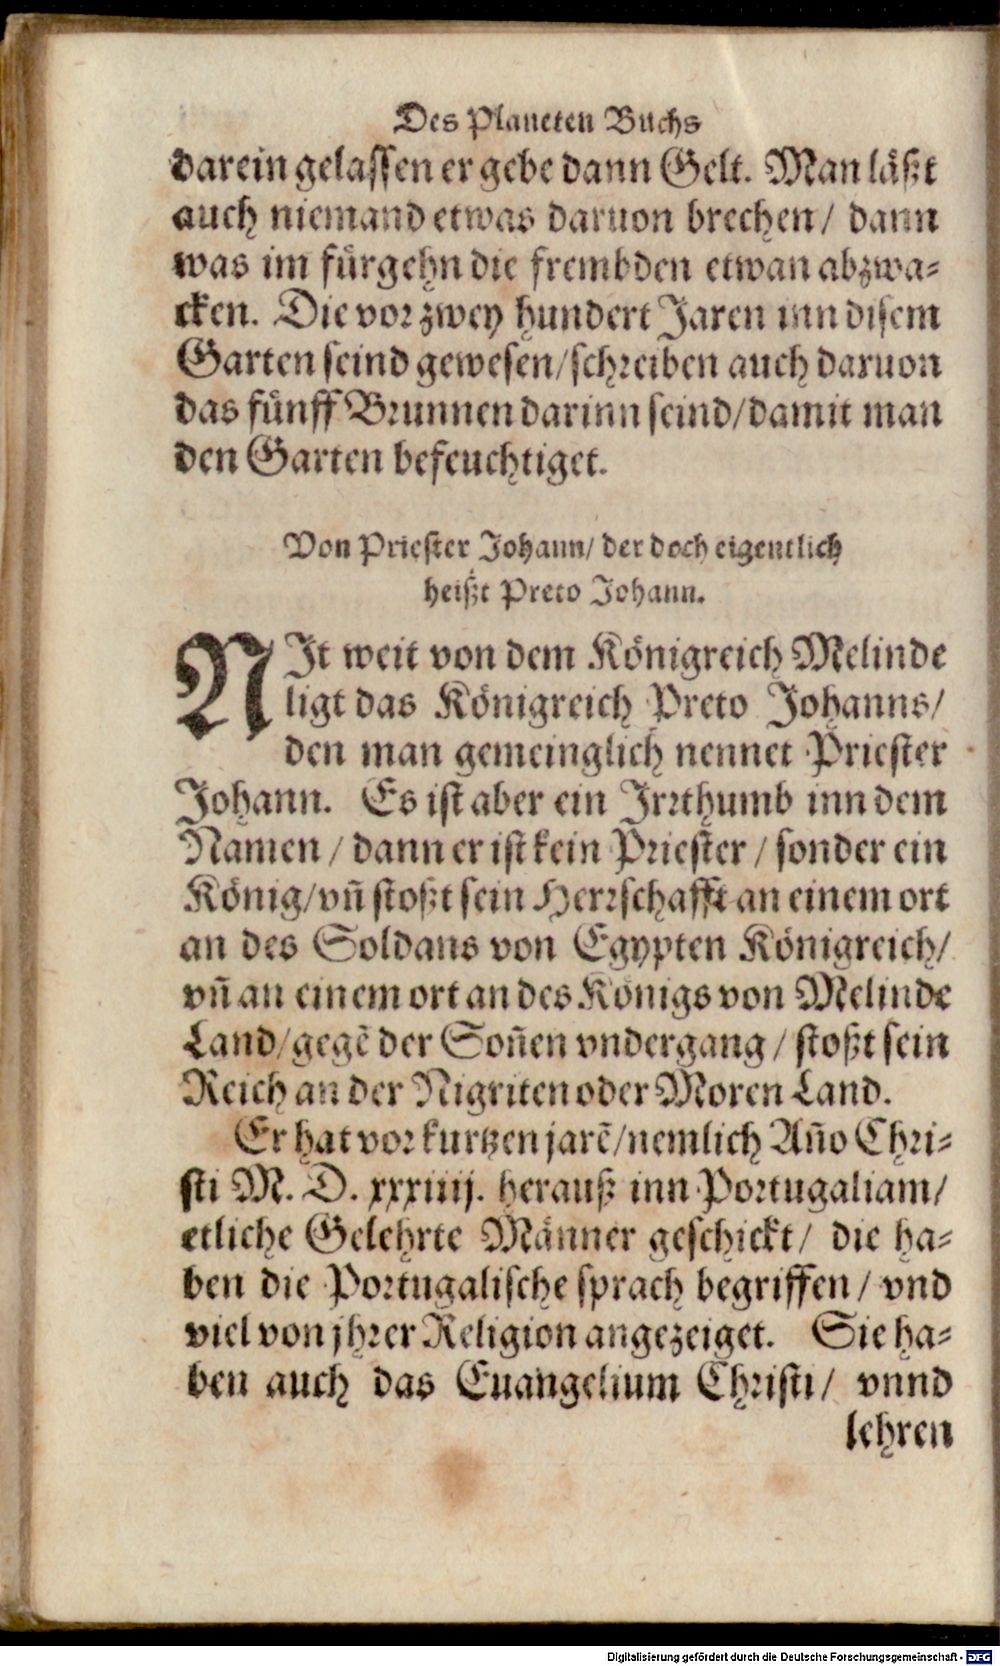 Des Planeten Buchs
darein gelassen er gebe dann Gelt. Man läßt
auch niemand etwas daruon brechen/ dann
was im fürgehn die frembden etwan abzwa-
cken. Die vor zwey hundert Jaren inn disem
Garten seind gewesen/schreiben auch daruon
das fünff Brunnen darinn seind/damit man
den Garten befeuchtiget.
Von Priester Johann/ der doch eigentlich
heißt Preto Johann.
NIt weit von dem Königreich Melinde
ligt das Königreich Preto Johanns/
den man gemeinglich nennet Priester
Johann. Es ist aber ein Irrthumb inn dem
Namen / dann er ist kein Priester / sonder ein
König/vñ stoßt sein Herrschafft an einem ort
an des Soldans von Egypten Königreich/
vñ an einem ort an des Königs von Melinde
Land/gegẽ der Soñen vndergang / stoßt sein
Reich an der Nigriten oder Moren Land.
Er hat vor kurtzen jarẽ/nemlich Año Chri-
sti M. D. xxxiiij. herauß inn Portugaliam/
etliche Gelehrte Männer geschickt/ die ha-
ben die Portugalische sprach begriffen / vnd
viel von jhrer Religion angezeiget. Sie ha-
ben auch das Euangelium Christi/ vnnd
lehren
Digitalisierung gefördert durch die Deutsche Forschungsgemeinschaft - DFG